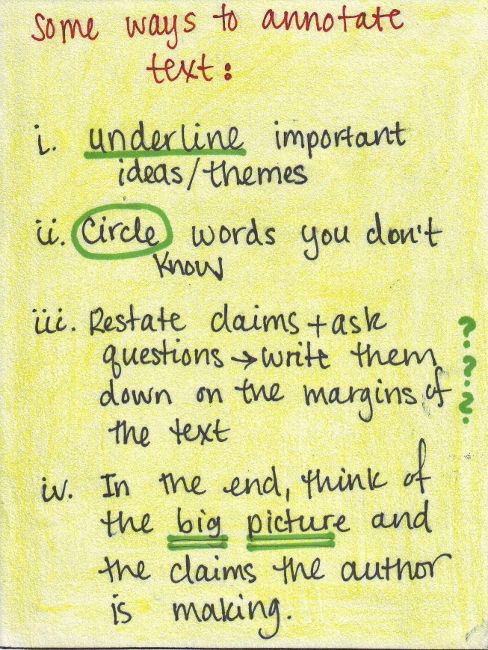 some ways to annotate
text:
i. underline important
ideas/themes
ii. Circle words you don't
know
iii. Restate claims + ask
questions → write them
down on the margins of
the text
? ? ?
iv. In the end, think of
the big picture and
the claims the author
is making.